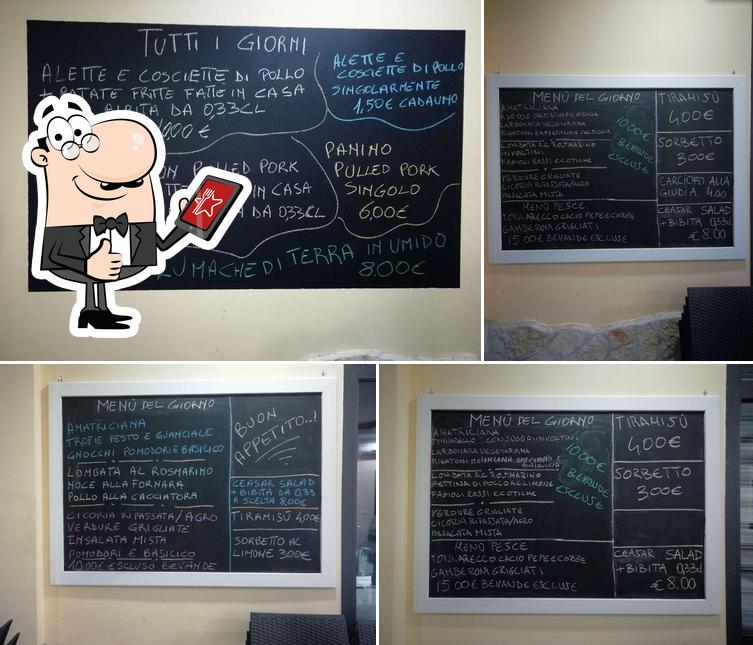 TUTTI I GIORNI
ALETTE E COSCIETTE DI POLLO
+ PATATE FRITTE FATTE IN CASA
BIBITA DA 0,33CL
ALETTE E
COSCIETTE DI POLLO
SINGOLARMENTE
1,50€ CADAUNO
PULLED PORK
IN CASA
DA 033CL
PANINO
PULLED PORK
SINGOLO
6,00€
LUMACHE DI TERRA IN UMIDO
8.00€
MENÙ DEL GIORNO
AMATRICIANA
CARBONARA VEGETARIANA
LOMBATA AL ROSMARINO
INVOLTINI
FAGIOLI ROSSI E COTICHE
VERDURE GRIGLIATE
CICORIA RIPASSATA/AGRO
INSALATA MISTA
MENÙ PESCE
TONNARELLO CACIO PEPE E COZZE
GAMBERONI GRIGLIATI
15.00€ BEVANDE ESCLUSE
10.00€
BEVANDE
ESCLUSE
TIRAMISÙ
4,00€
SORBETTO
3.00€
CARCIOFO ALLA
GIUDIA 4.00
CEASAR SALAD
+ BIBITA 0,33cl
€ 8.00
MENÙ DEL GIORNO
AMATRICIANA
TROFIE PESTO E GUANCIALE
GNOCCHI POMODORI E BASILICO
LOMBATA AL ROSMARINO
NOCE ALLA FORNARA
POLLO ALLA CACCIATORA
CICORIA RIPASSATA/AGRO
VERDURE GRIGLIATE
INSALATA MISTA
POMODORI E BASILICO
10.00€ ESCLUSO BEVANDE
BUON
APPETITO..!
CEASAR SALAD
+ BIBITA DA 0,33
A SCELTA 8,00€
TIRAMISÙ 4,00€
SORBETTO AL
LIMONE 3.00€
MENÙ DEL GIORNO
AMATRICIANA
TONNARELLO CON SUGO DI INVOLTINI
CARBONARA VEGETARIANA
LOMBATA AL ROSMARINO
FETTINA DI POLLO AL LIMONE
FAGIOLI ROSSI E COTICHE
VERDURE GRIGLIATE
CICORIA RIPASSATA/AGRO
INSALATA MISTA
MENÙ PESCE
TONNARELLO CACIO PEPE E COZZE
GAMBERONI GRIGLIATI
15.00€ BEVANDE ESCLUSE
10.00€
BEVANDE
ESCLUSE
TIRAMISÙ
4,00€
SORBETTO
3.00€
CEASAR SALAD
+ BIBITA 0,33cl
€ 8.00